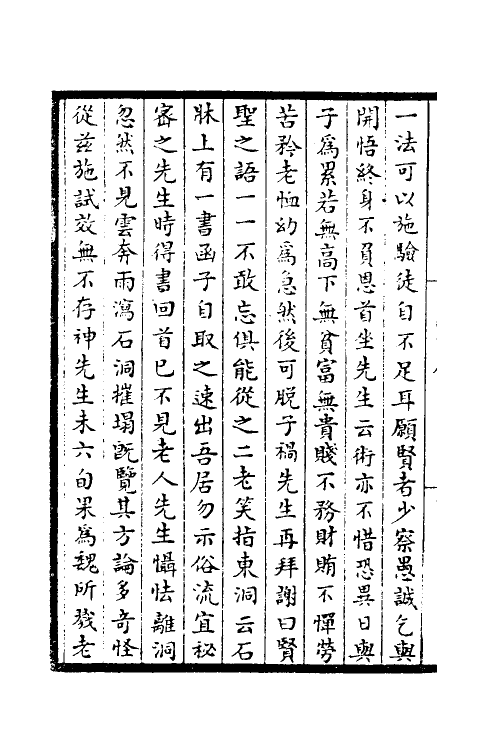 一法可以施驗徒自不足耳願賢者少察愚誠乞與
開悟終身不負恩首坐先生云術亦不惜恐異日與
子爲累若無高下無貧富無貴賤不務財賄不憚勞
苦矜老恤幼爲急然後可脱子禍先生再拜謝曰賢
聖之語一一不敢忘俱能從之二老笑指東洞云石
牀上有一書函子自取之速出吾居勿示俗流宜秘
宻之先生時得書回首已不見老人先生懾怯離洞
忽然不見雲奔雨瀉石洞摧塌旣覽其方論多竒怪
從兹施試效無不存神先生未六旬果爲魏所戮老